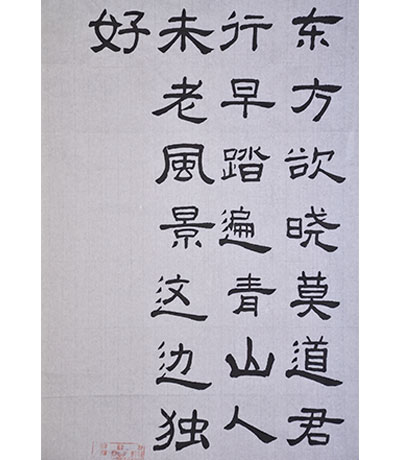 东方欲晓莫道君
行早踏遍青山人
未老風景这边独
好